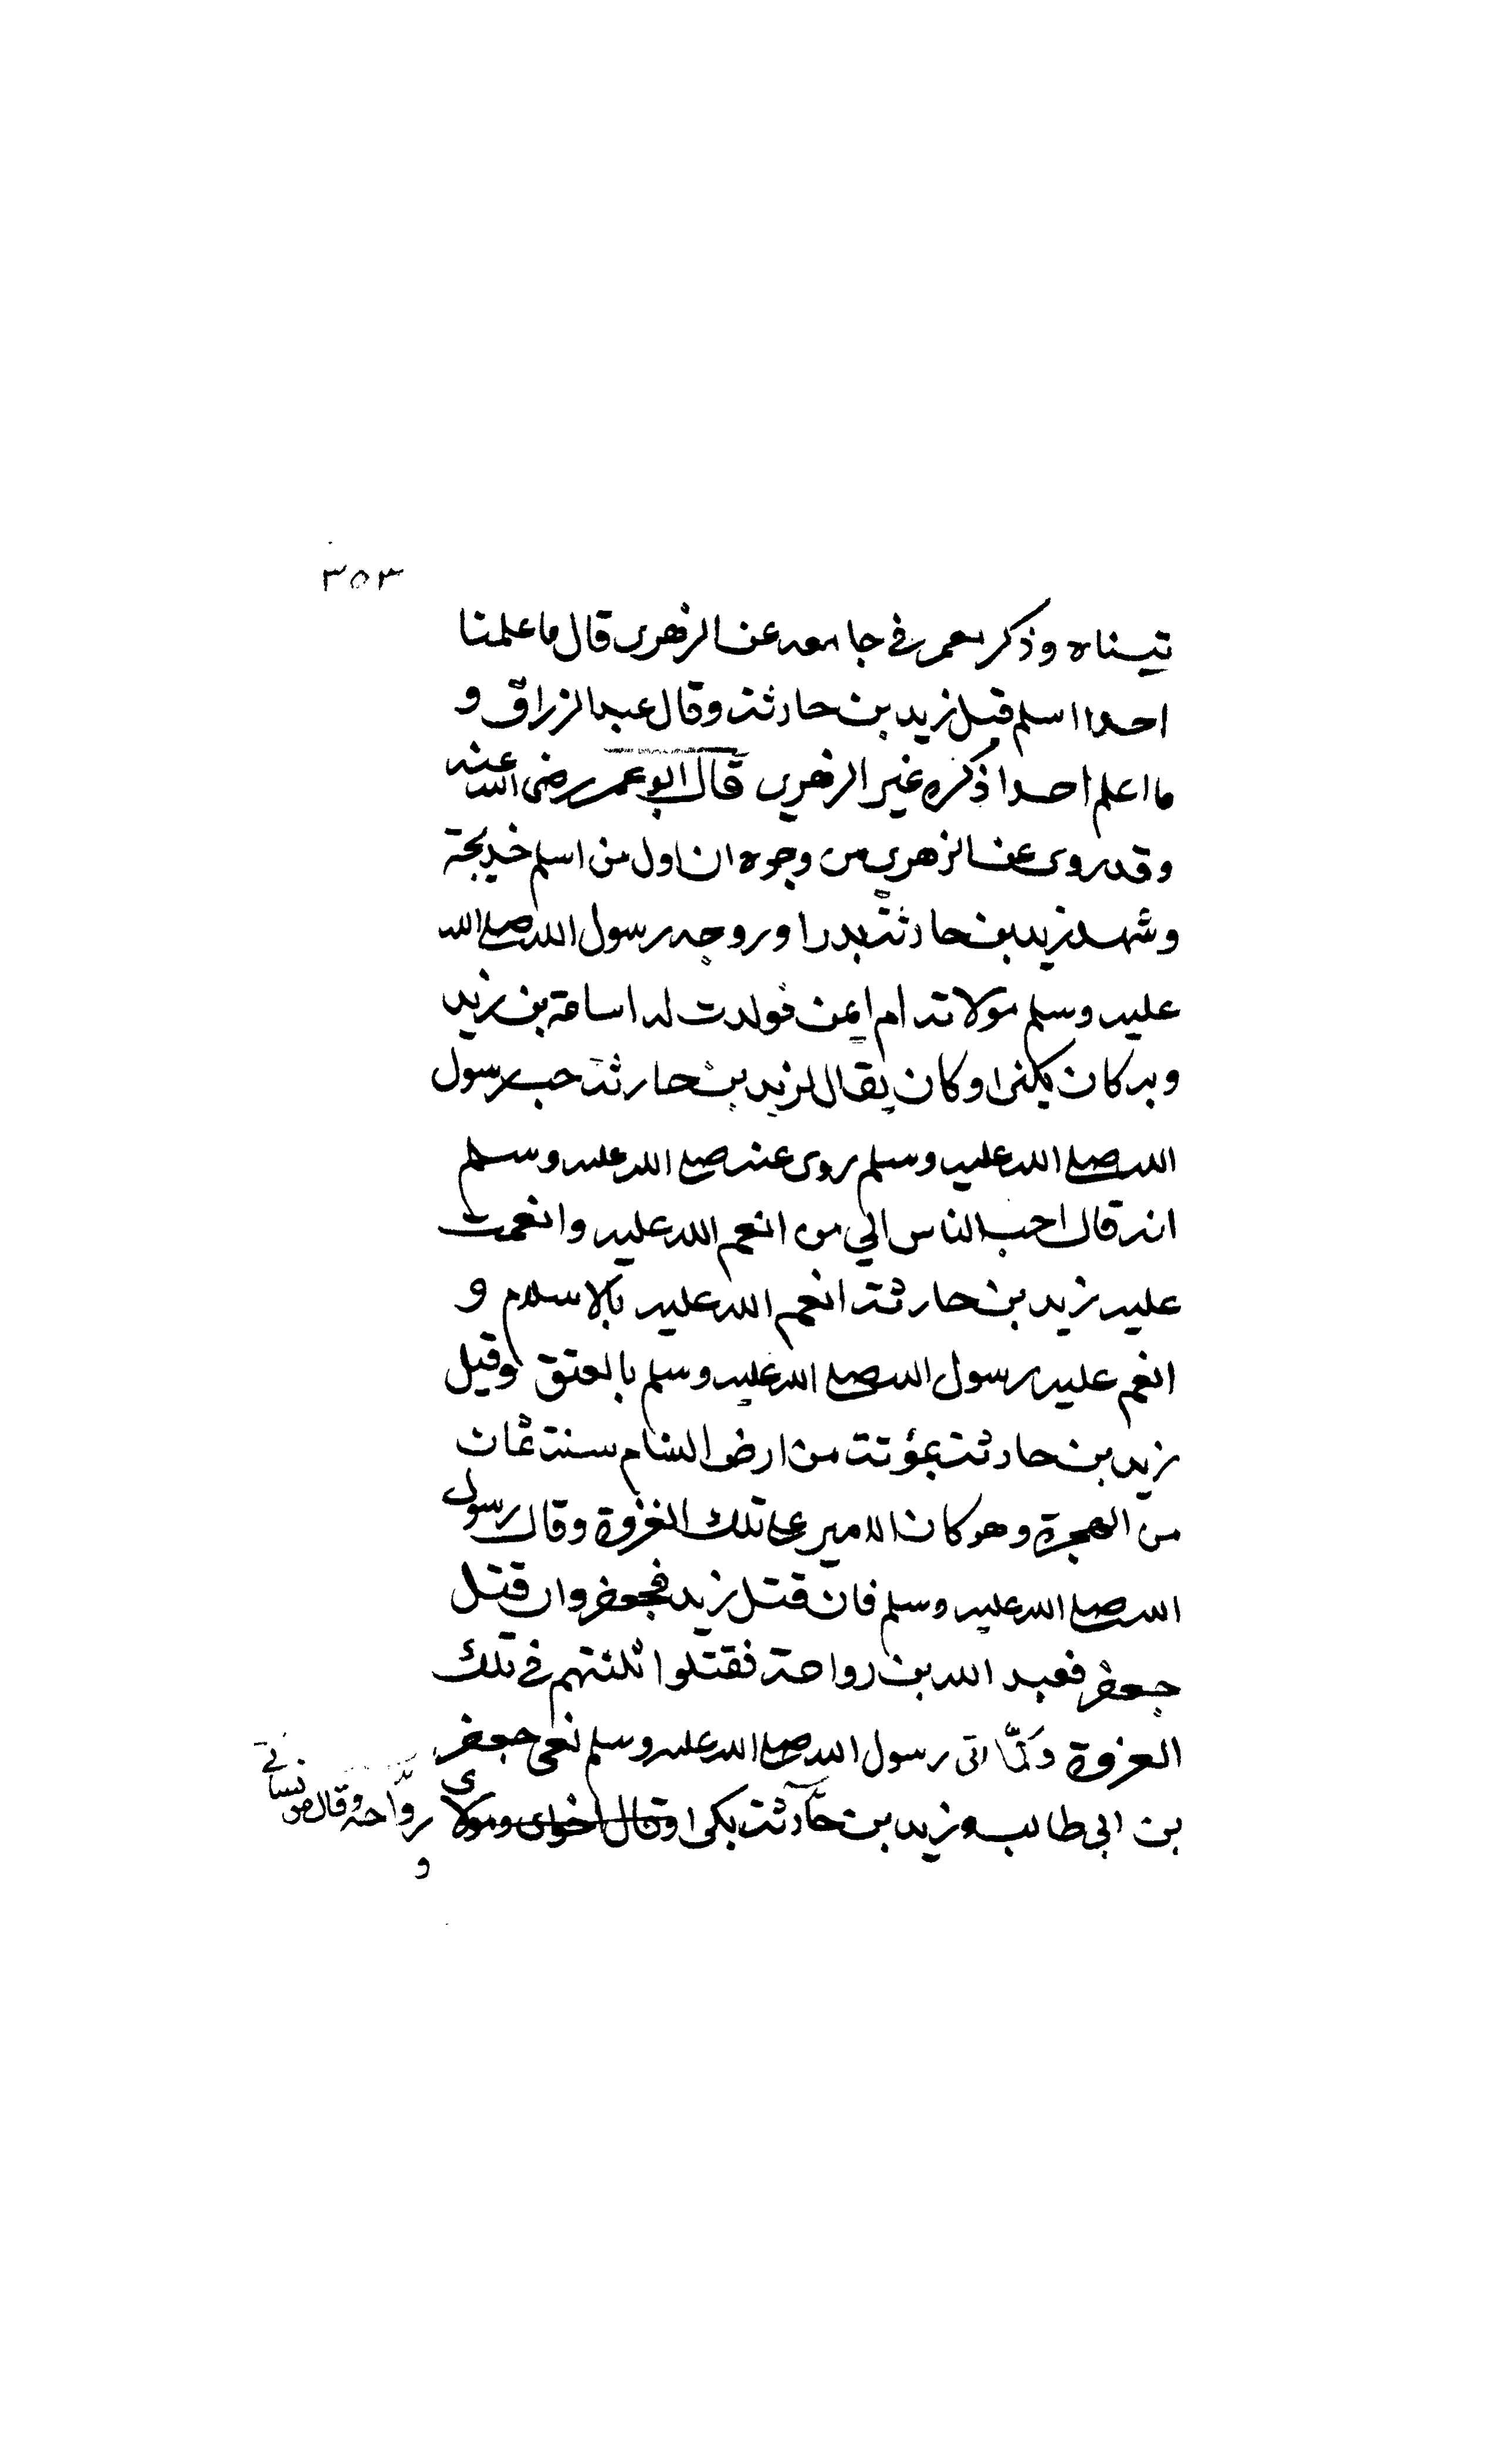 ٣٥٣
تبيناه وذكر معمر في جامعه عن الزهرى قال ما علمنا
احدا اسلم قبل زيد بن حارثة وقال عبد الرزاق و
ما اعلم احدا ذكره غير الزهري قال ابو عمر رضى الله عنه
وقد روى عن الزهري من وجوه ان اول من اسلم خديجة
وشهد زيد بن حارثة بدرا وزوجه رسول الله صلى الله
عليه وسلم مولاته ام ايمن فولدت له اسامة بن زيد
وبه كان يكنى وكان يقال لزيد بن حارثة حب رسول
الله صلى الله عليه وسلم روى عنه صلى الله عليه وسلم
انه قال احب الناس الي من انعم الله عليه وانعمت
عليه زيد بن حارثة انعم الله عليه بالاسلام و
انعم عليه رسول الله صلى الله عليه وسلم بالعتق وقيل
زيد بن حارثة بمؤتة من ارض الشام سنة ثمان
من الهجرة وهو كان الامير على تلك الغزوة وقال رسول
الله صلى الله عليه وسلم فان قتل زيد فجعفر وان قتل
جعفر فعبد الله بن رواحة فقتلوا ثلثتهم في تلك
الغزوة ولما اتى رسول الله صلى الله عليه وسلم نعى جعفر
بن ابي طالب وزيد بن حارثة بكى وقال اخواى ومولاى
رواحه وقال
و